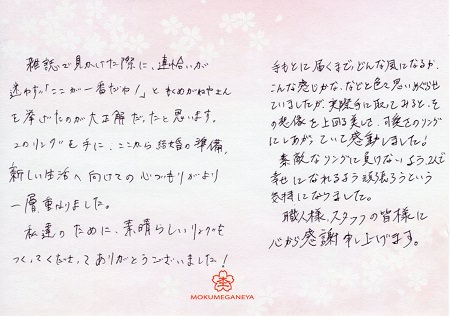 雑誌で見かけた際に、連れ合いが
迷わず「ここが一番だわ!」と杢目金屋さん
を挙げたのが大正解だったと思います。
このリングを手に、ここから結婚の準備、
新しい生活へ向けての心づもりがより
一層重なりました。
私達のために、素晴らしいリングを
つくってくださってありがとうございました!
手もとに届くまで、どんな風になるか、
こんな感じかな、などと色々思いめぐらせ
ていましたが、実際手に取ってみると、そ
の想像を上回る美しさ、可愛さのリング
にしあがっていて感動しました!
素敵なリングに負けないよう、2人で
幸せになれるよう頑張ろうという
気持になりました。
職人様、スタッフの皆様に
心から感謝申し上げます。
MOKUMEGANEYA